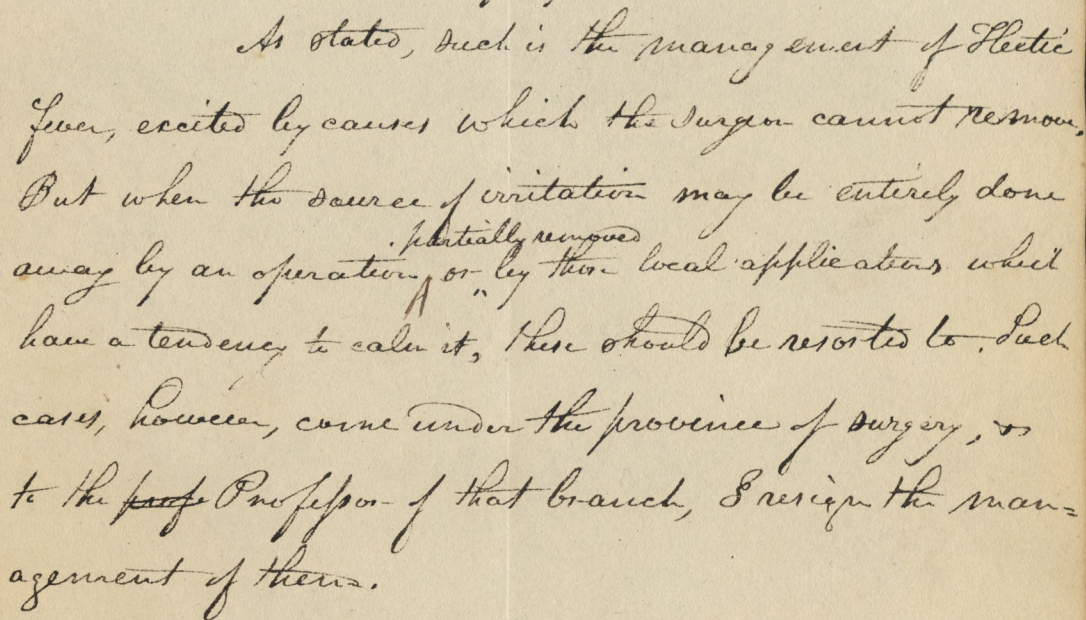 As stated, such is the management of Hectic
fever, excited by causes which the surgeon cannot remove,
But when the source of irritation may be entirely done
partially removed
away by an operation, or by those local applications which
have a tendency to calm it, these should be resorted to. Such
cases, however, come under the province of surgery, &
to the prof Professor of that branch, I resign the man=
agement of them.